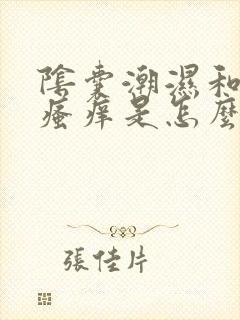 陰囊潮濕和
瘙痒是怎麼
張佳片